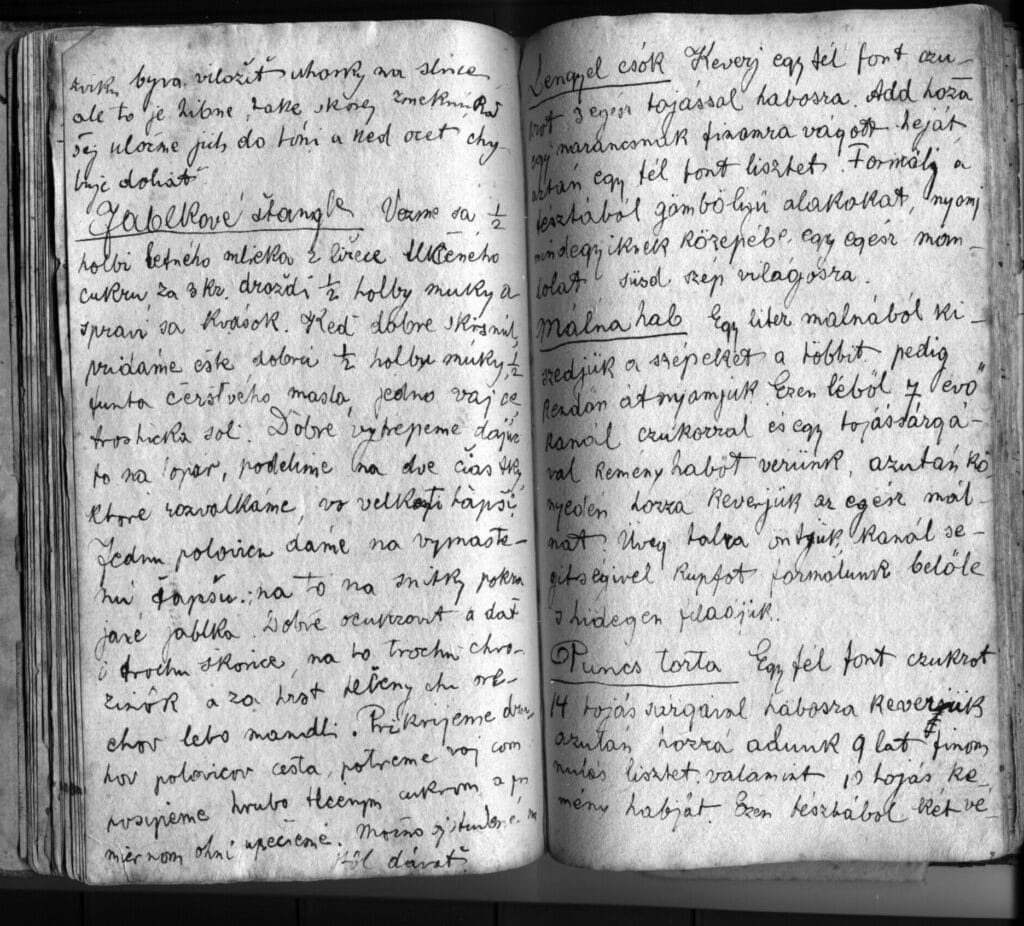 zviku býva viložiť uhorky na slnce
ale to je hibne, take skorej zmeknú. Ra
šej uložme jich do tôni a keď ocet chy-
buje doliať
Jablkové štangle Vezme sa ½
holbi letného mlieka 2 ližece tlčeného
cukru za 3 kr. droždí ½ holby muky a
spraví sa kvások. Keď dobre skysnul,
pridáme ešte dobrú ½ holbu múky, ½
funta čerstvého masla, jedno vajce,
troshicka soli. Dobre vytrepeme dajme
to na opar, podelime na dve čiastky,
ktoré rozvalkáme, vo velkosti tàpši.
Jednu polovicu dáme na vymaste-
nú tapšu; na to na snitky pokra
jané jablka. Dobre ocukrovit a dať
i trochu škorice, na to trochu hro-
zinôk a za hrst tlčeny ch ore-
chov lebo mandlí. Prikrijeme dru-
hov polovicov cesta, potreme vaj com
posipeme hrubo tlčenym cukrom, a pri
miernom ohni upečieme. Možno aj studené na
stôl dávať.
Lengyel csók Keverj egy fél font czu-
krot 3 egész tojással habosra. Add hozzá
egy narancsnak finomra vágott heját
aztán egy fél font lisztet. Formálj a
tésztából gömbölyű alakokat, nyomj
mindegyiknek közepébe egy egész man-
dolát süsd szép világosra.
Málna hab Egy liter malnából ki-
szedjük a szépeket a többit pedig
kendőn átnyomjuk. Ezen léből 7 evő
kanál czukorral és egy tojássárgá-
val kemény habot verünk, azután kö
nyedén hozzá keverjük az egész mál-
nát. Üveg talra öntjük, kanál se-
gitségivel kupfot formálunk belőle
s hidegen feladjuk.
Puncs torta Egy fél font czukrot
14 tojás sargával habosra keverjük
azután hozzá adunk 9 lat finom
mulás lisztet, valamint 13 tojás ke-
mény habját. Ezen tesztából két ve-